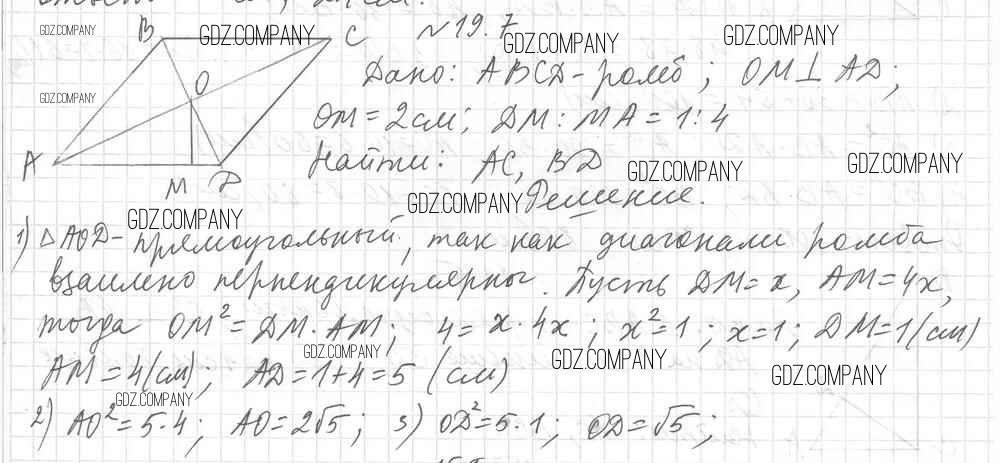 GDZ.COMPANY
B GDZ.COMPANY C № 19.7 GDZ.COMPANY GDZ.COMPANY
Дано: ABCD - ромб; OM ⊥ AD;
GDZ.COMPANY O
OM = 2 см; DM : MA = 1 : 4
A Найти: AC, BD GDZ.COMPANY GDZ.COMPANY
M D GDZ.COMPANY Решение.
GDZ.COMPANY
1) △AOD - прямоугольный, так как диагонали ромба
взаимно перпендикулярны. Пусть DM = x, AM = 4x,
тогда OM² = DM · AM; 4 = x · 4x; x² = 1; x = 1; DM = 1 (см)
GDZ.COMPANY GDZ.COMPANY
AM = 4 (см); AD = 1 + 4 = 5 (см) GDZ.COMPANY
GDZ.COMPANY
2) AO² = 5 · 4; AO = 2√5; 3) OD² = 5 · 1; OD = √5;